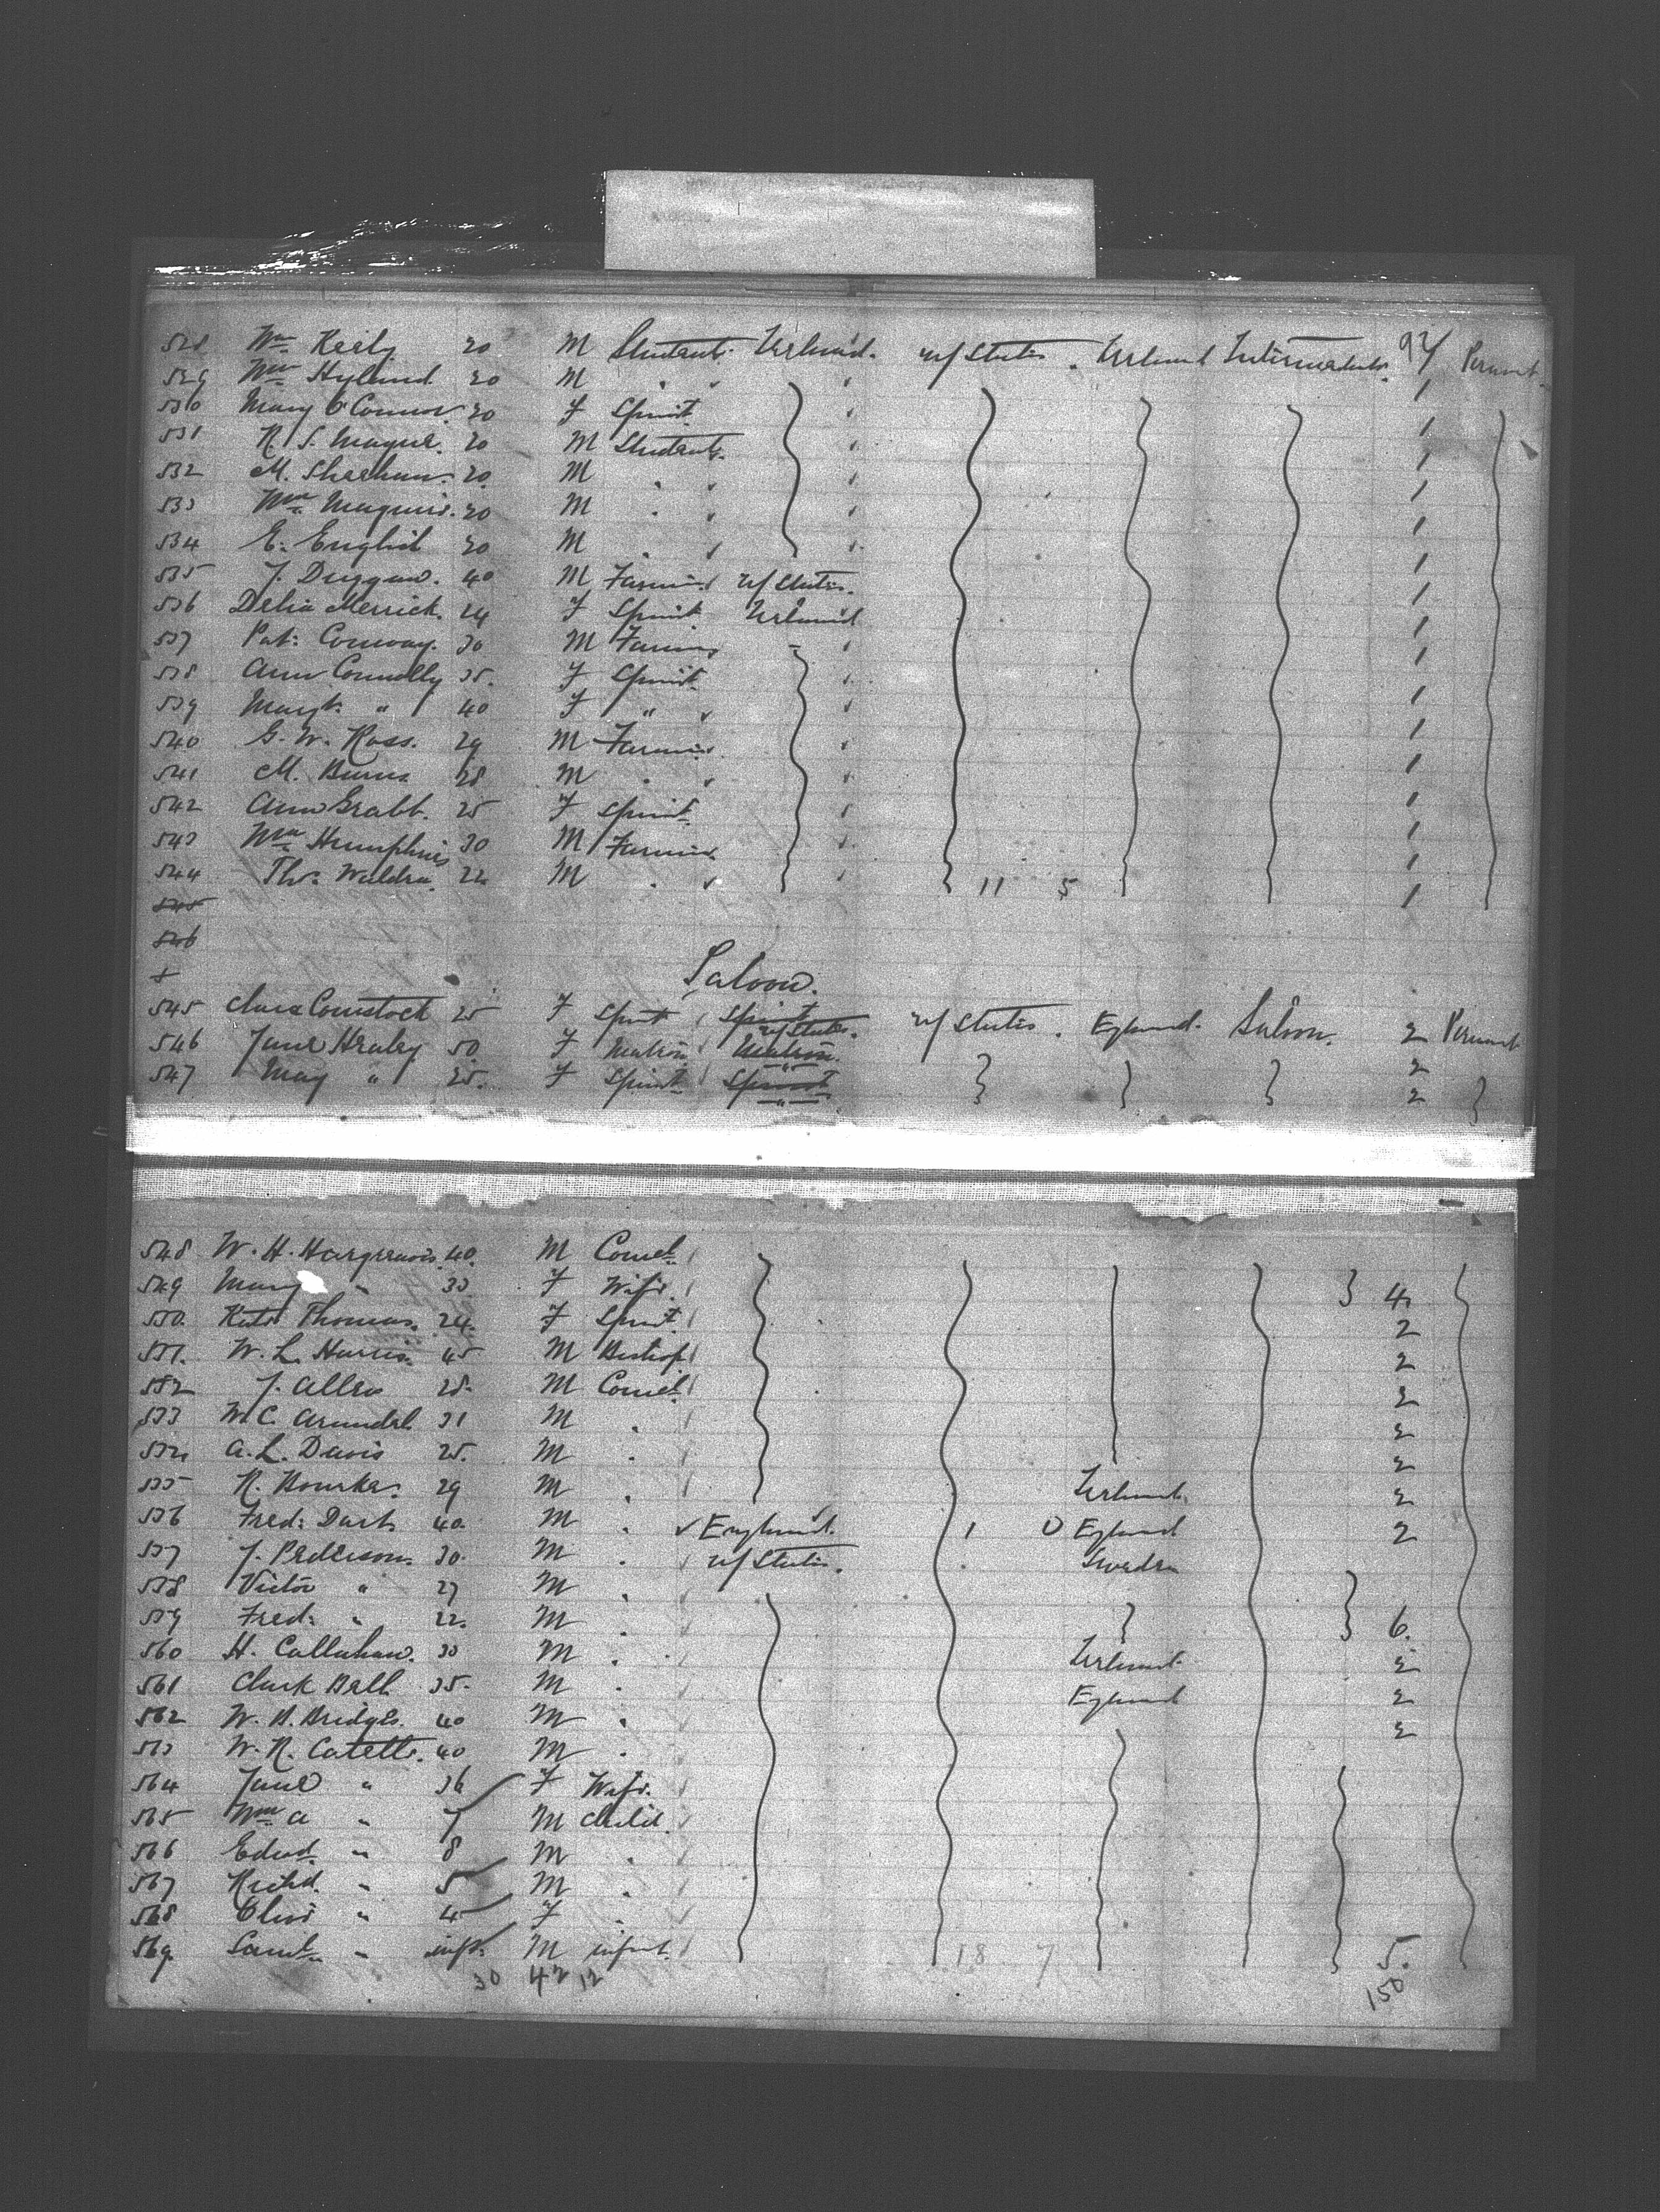 528 Wm Kiely 20 M Student Ireland. U/States. Ireland Intermediate.
529 Wm Hyland 20 M " " 1
530 Mary O'Connor 20 F Spinst. 1
531 R. S. Mague. 20 M Student. 1
532 M. Sheehan. 20 M " " 1
533 Wm Maguire. 20 M " " 1
534 E. English 20 M " " 1
535 J. Duggan. 40 M Farmer U/States. 1
536 Delia Merrick. 24 F Spinst. Ireland 1
537 Pat: Conway. 30 M Farmer 1
538 Ann Connolly 35. F Spinst. 1
539 Margt. " 40 F " " 1
540 G. W. Ross. 29 M Farmer 1
541 M. Burns 28 M " " 1
542 Ann Grabb. 25 F Spinst. 1
543 Wm Humphries 30 M Farmer 1
544 Thos. Waldra. 22 M " " 11 5 1
545
546
Saloon.
545 Clara Comstock 25 F Spinst U/States. U/States. England. Saloon. 2
546 Jane Healey 50 F Matron Matron. " 2
547 May " 25. F Spinst Spinst " 2
548 W. H. Hargreaves. 40. M Comcl.
549 Mary " 33. F Wife. 4
550. Kate Thomas. 24. F Spinst. 2
551. W. L. Harris. 45 M Bishop 2
552 J. Allen 28. M Comcl. 2
553 W. C. Arundel. 31 M " 2
554 A. L. Davis 25. M " 2
555 R. Bourke. 29 M " Ireland. 2
556 Fred: Dart 40. M " England. 1 0 England 2
557 J. Pederson. 30. M " U/States. Sweden
558 Victor " 27 M "
559 Fred: " 22. M " 6.
560 H. Callahan. 30 M " Ireland. 2
561 Clark Bell 35. M " England 2
562 W. B. Bridges. 40 M " 2
563 W. R. Catell. 40 M "
564 Jane " 36 F Wife.
565 Wm A " 7 M Child.
566 Edwd. " 8 M "
567 Richd. " 5 M "
568 " 4 F "
569. Saml. " inft. M infant. 18 7 5.
30 42 12 150